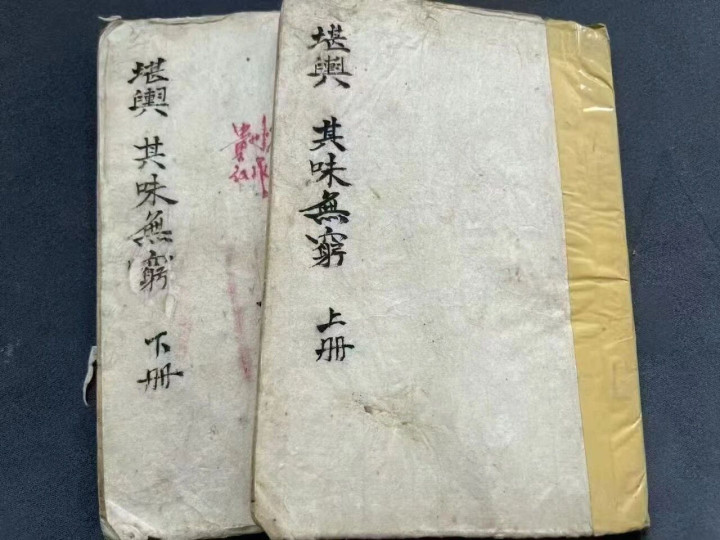 堪輿 其味無窮 上册
堪輿 其味無窮 下册
貴州